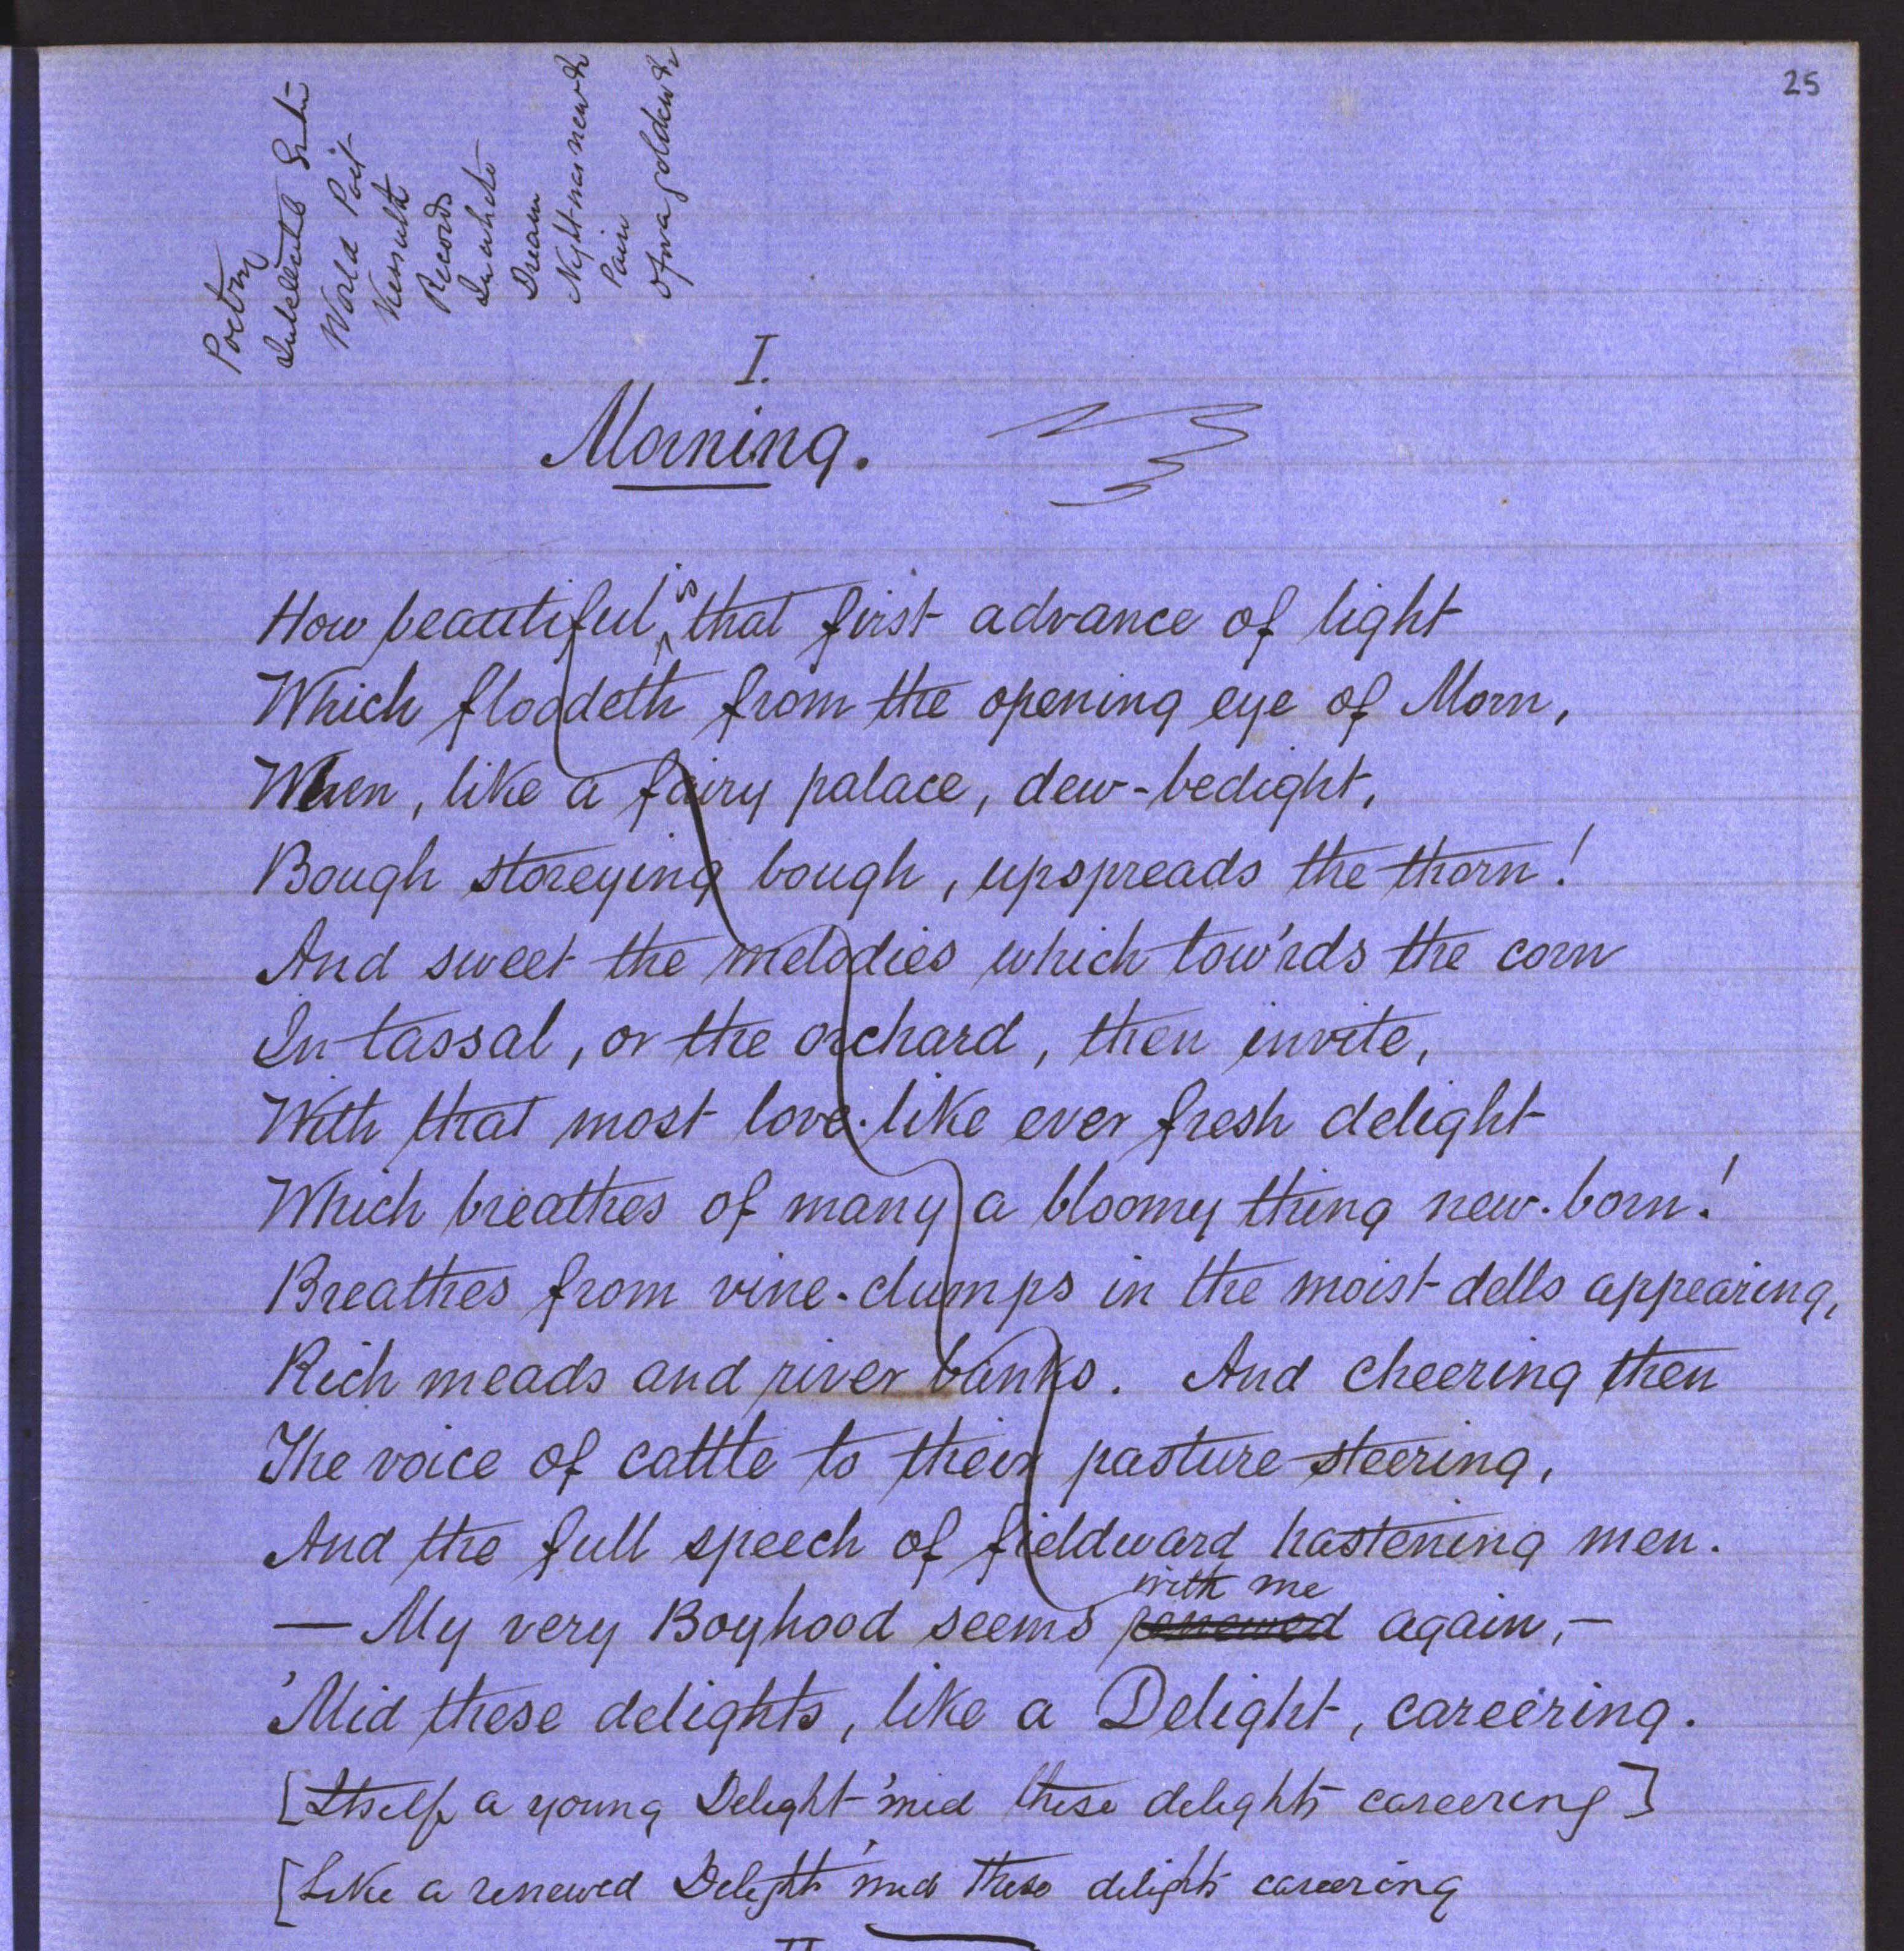 25
Poetry
World Poet
Records
Dream
Night was new &c
Pain
of war golden &c
I.
Morning.
How beautiful is that first advance of light
Which floodeth from the opening eye of Morn,
When, like a fairy palace, dew-bedight,
Bough storeying bough, upspreads the thorn!
And sweet the melodies which tow'rds the corn
In tassal, or the orchard, then invite,
With that most love-like ever fresh delight
Which breathes of many a bloomy thing new-born!
Breathes from vine-clumps in the moist dells appearing,
Rich meads and river banks. And cheering then
The voice of cattle to their pasture steering,
And the full speech of fieldward hastening men.
with me
— My very Boyhood seems renewed again,—
'Mid these delights, like a Delight, careering.
[Itself a young Delight 'mid these delights careering]
[Like a renewed Delight 'mid these delights careering
II